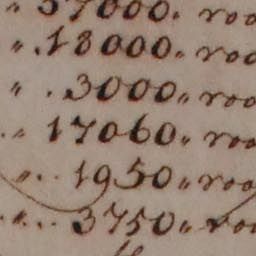 " 37000. roo
" . 18000. " roo
" . 3000. " roo
. " 17060. " roo
" .. 1950. " roo
" .. 3750. " roo